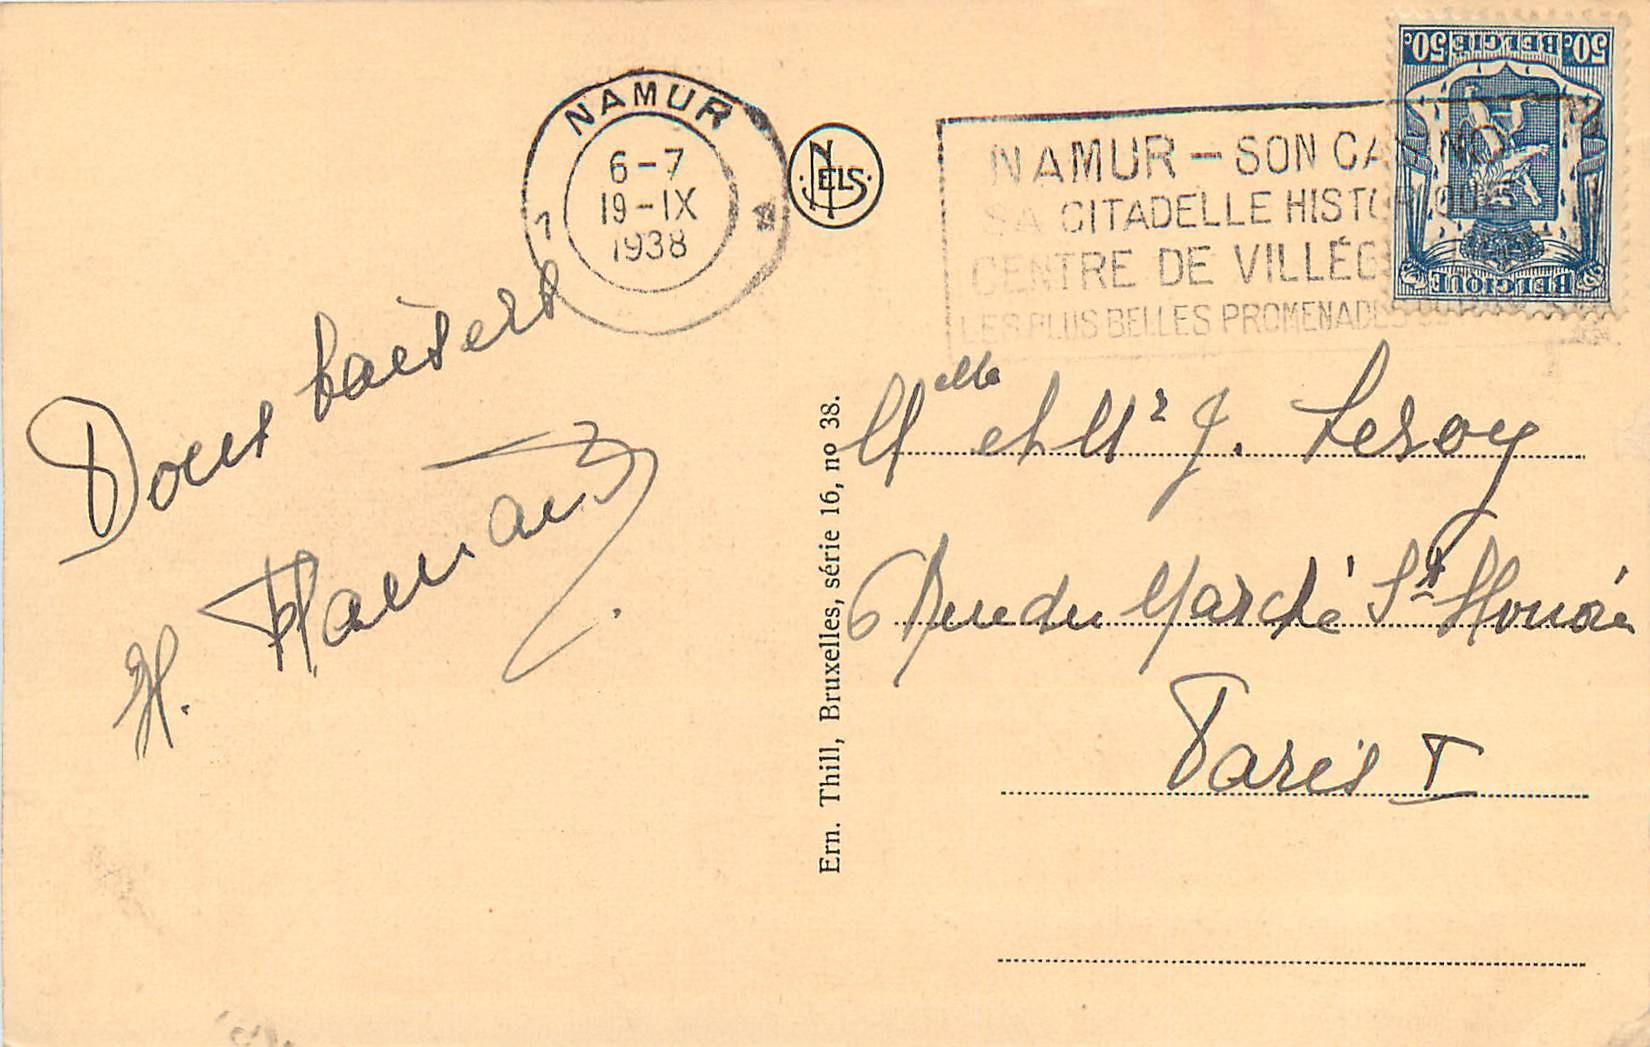 NAMUR
6-7
19-IX
1938
1
NELS
NAMUR - SON CASINO
SA CITADELLE HISTORIQUE
CENTRE DE VILLÉG
LES PLUS BELLES PROMENADES
50c BELGIE 50c
BELGIQUE
Doux baisers
H.
Ern. Thill, Bruxelles, série 16, no 38.
Melle et Mr J. Leroy
6 Rue du Marché St Honoré
Paris I